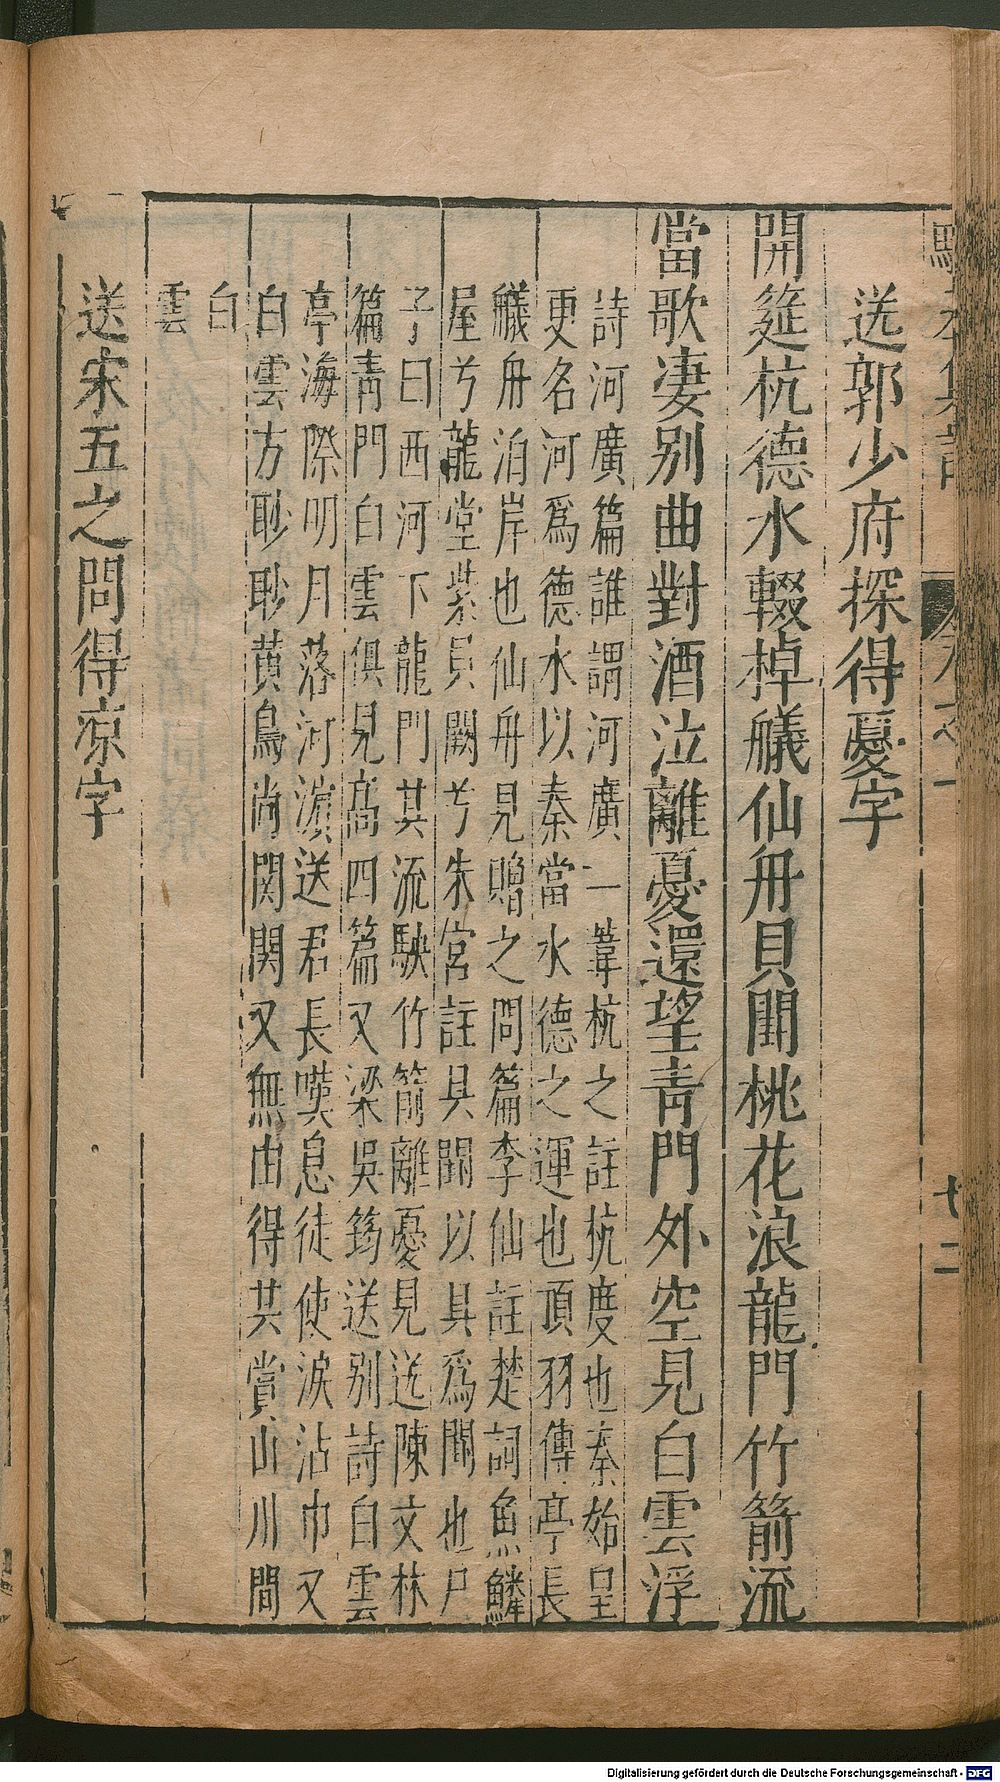 送郭少府探得憂字
開筵杭德水輟棹艤仙舟貝闕桃花浪龍門竹箭流
當歌淒别曲對酒泣離憂還望青門外空見白雲浮
詩河廣篇誰謂河廣一葦杭之註杭度也秦始皇
更名河爲德水以秦當水德之運也項羽傳亭長
艤舟泊岸也仙舟見贈之問篇李仙註楚詞魚鱗
屋兮龍堂紫貝闕兮朱宮註具闕以具爲闕也尸
子曰西河下龍門其流駛竹箭離憂見送陳文林
篇青門白雲俱見高四篇又梁吳筠送别詩白雲
亭海際明月落河濵送君長嘆息徒使淚沾巾又
白雲方眇眇黄鳥尚関関又無由得共賞山川間
白
雲
送宋五之問得凉字
卷之一
七二
Digitalisierung gefördert durch die Deutsche Forschungsgemeinschaft - DFG